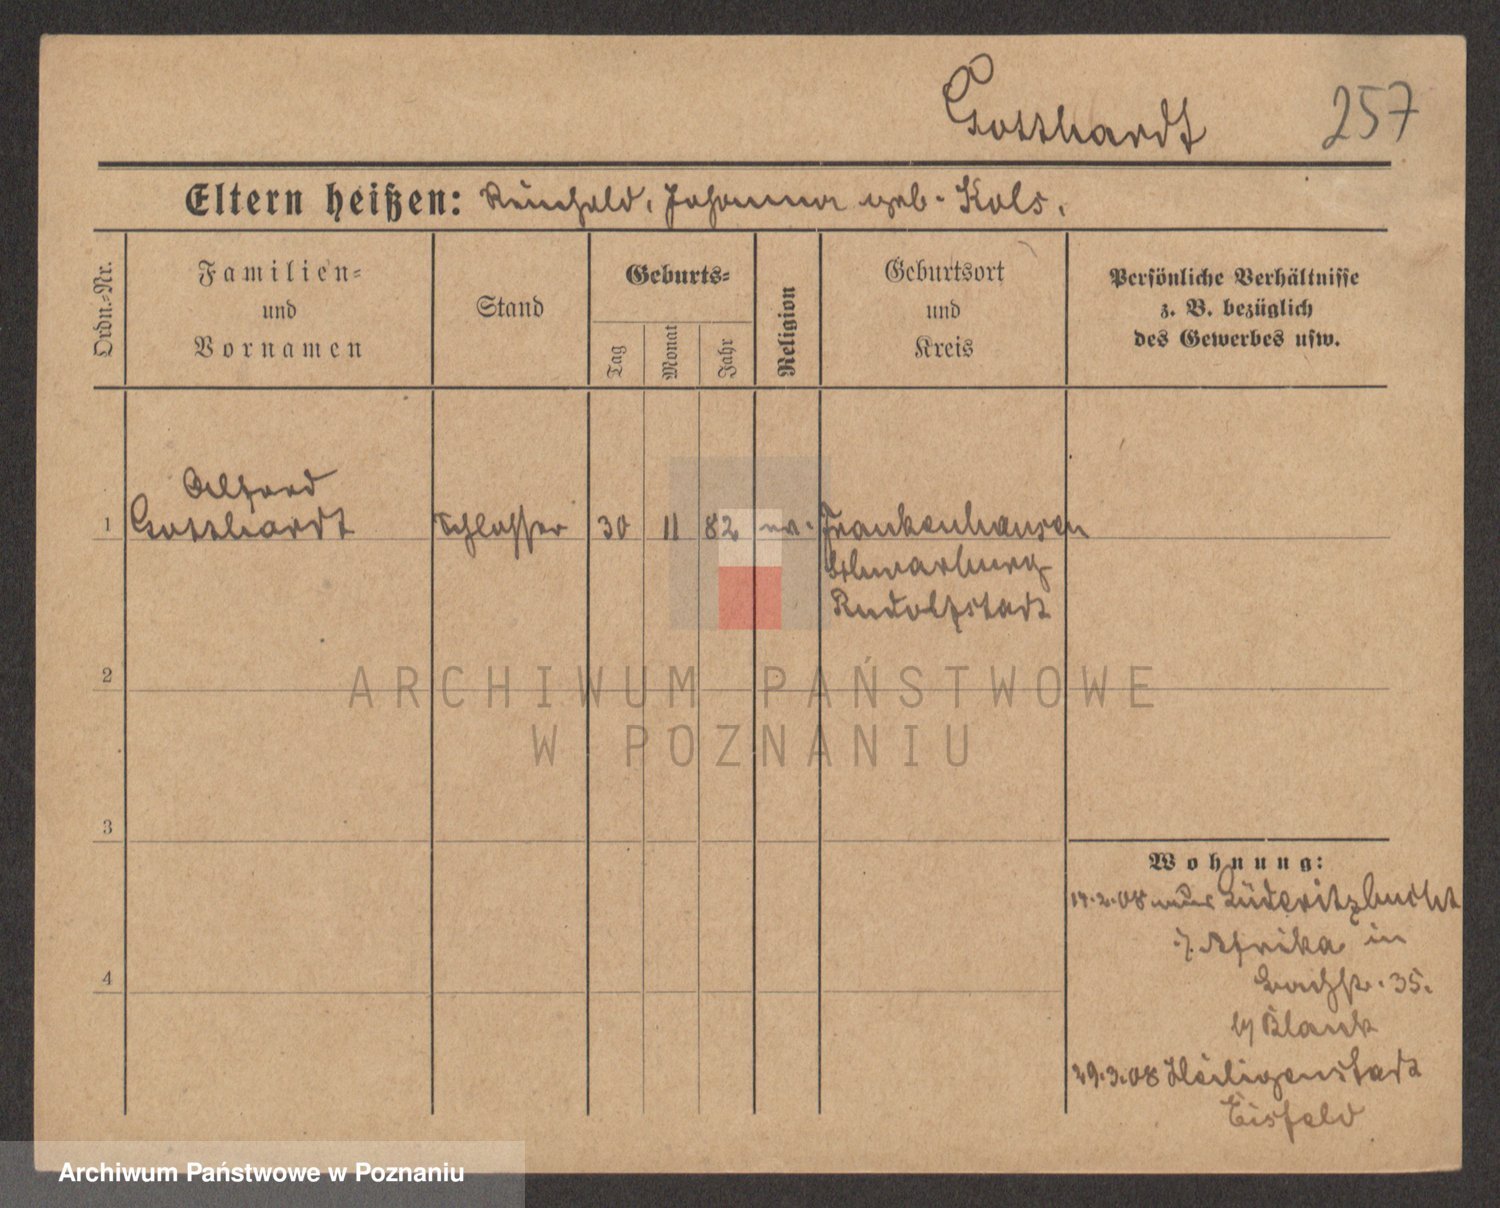 Gotthardt 257
Eltern heißen: Reinhold, Johanna geb. Kols.
Ordn.-Nr.
Familien-
und
Vornamen
Stand
Geburts-
Tag
Monat
Jahr
Religion
Geburtsort
und
Kreis
Persönliche Verhältnisse
z. B. bezüglich
des Gewerbes usw.
Alfred
1 Gotthardt Schlosser 30 11 82 ev. Frankenhausen
Schwarburg
Rudolfstadt
2
ARCHIWUM PAŃSTWOWE
W POZNANIU
3
Wohnung:
2.08 Lüderitzbucht
Afrika in
Bachstr. 35.
by Blank
4
29.3.08 Heiligenstadt
Eisfeld
Archiwum Państwowe w Poznaniu